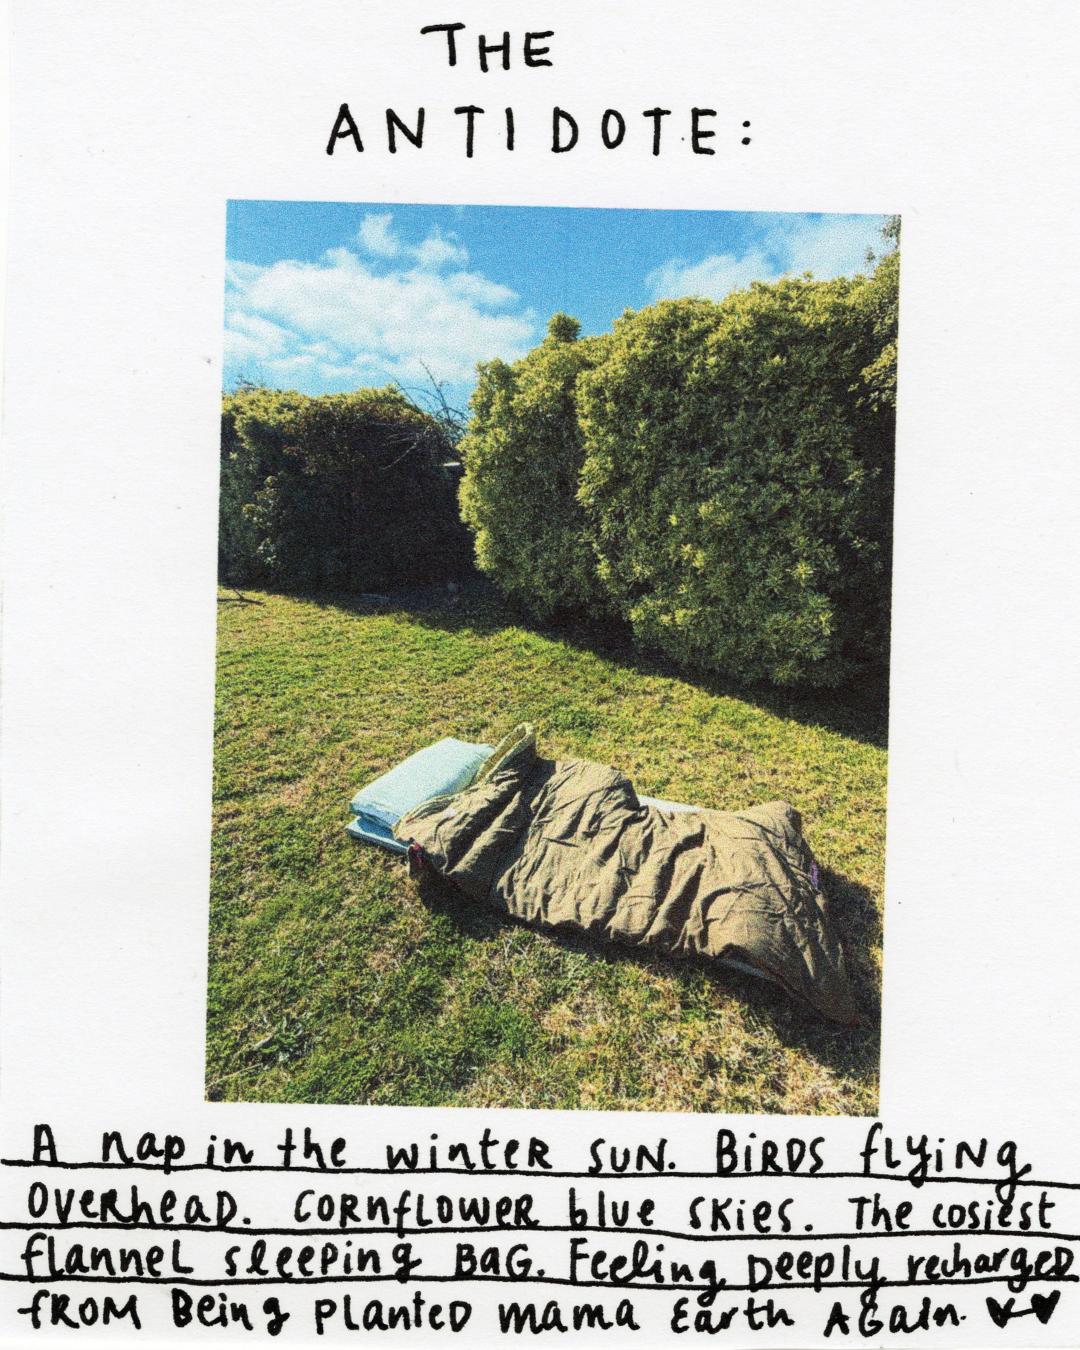 THE
ANTIDOTE:
A nap in the winter sun. Birds flying
overhead. Cornflower blue skies. The cosiest
flannel sleeping bag. Feeling deeply recharged
from being planted mama Earth again.